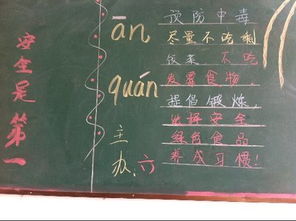 安全是第一
ān
quán
主办:六
预防中毒
尽量不吃剩
饭菜 不吃
发霉食物,
提倡锻炼,
选择安全
绿色食品
养成习惯!